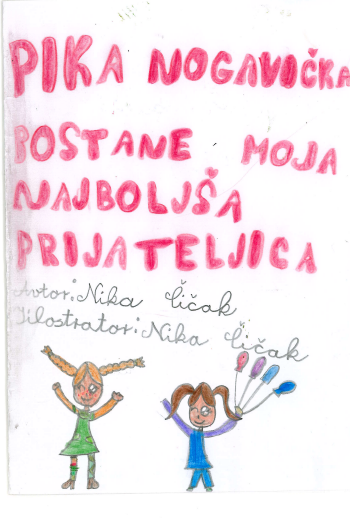 PIKA NOGAVIČKA
POSTANE MOJA
NAJBOLJŠA
PRIJATELJICA
Avtor: Nika Čičak
Ilostrator: Nika Čičak